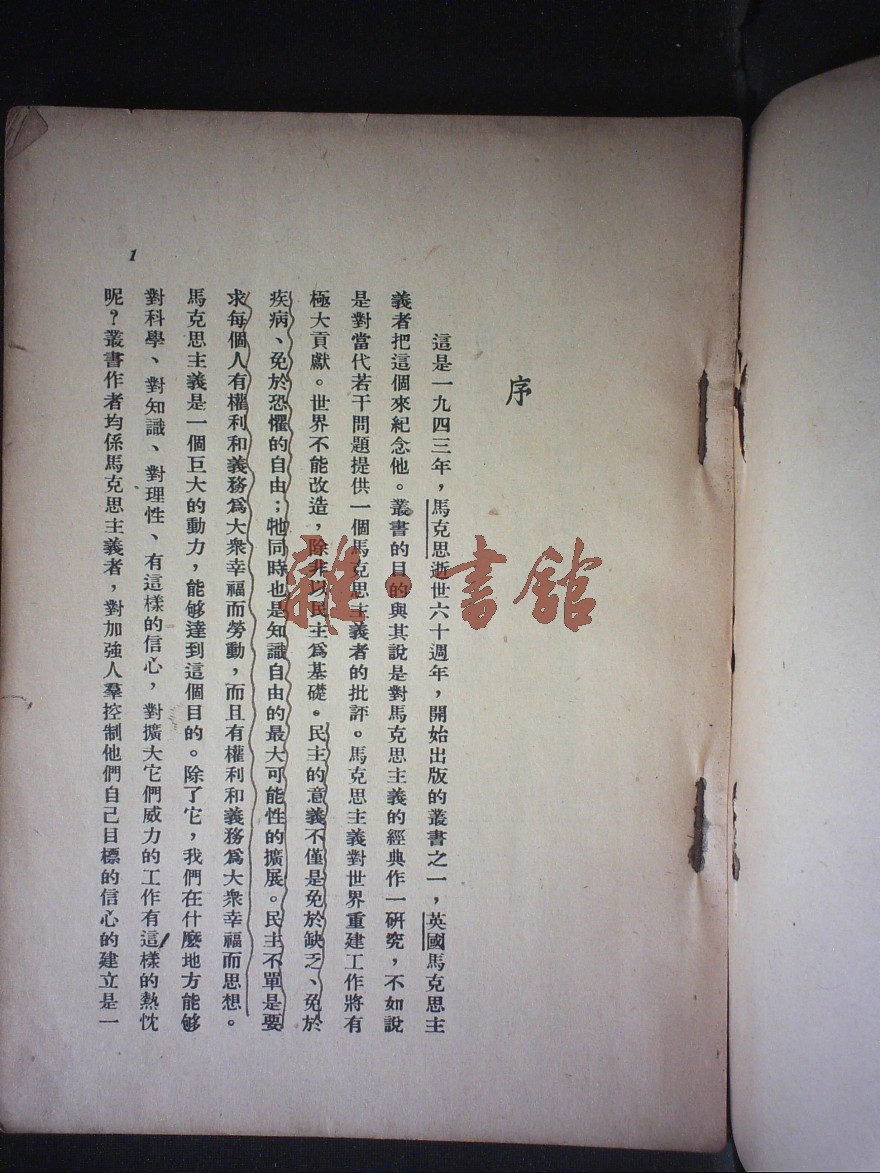 序
這是一九四三年，馬克思逝世六十週年，開始出版的叢書之一，英國馬克思主
義者把這個來紀念他。叢書的目的與其說是對馬克思主義的經典作一研究，不如說
是對當代若干問題提供一個馬克思主義者的批評。馬克思主義對世界重建工作將有
極大貢獻。世界不能改造，除非以民主爲基礎。民主的意義不僅是免於缺乏、免於
疾病、免於恐懼的自由；牠同時也是知識自由的最大可能性的擴展。民主不單是要
求每個人有權利和義務爲大衆幸福而勞動，而且有權利和義務爲大衆幸福而思想。
馬克思主義是一個巨大的動力，能够達到這個目的。除了它，我們在什麼地方能够
對科學、對知識、對理性、有這樣的信心，對擴大它們威力的工作有這樣的熱忱
呢？叢書作者均係馬克思主義者，對加強人羣控制他們自己目標的信心的建立是一
1
雜·書館